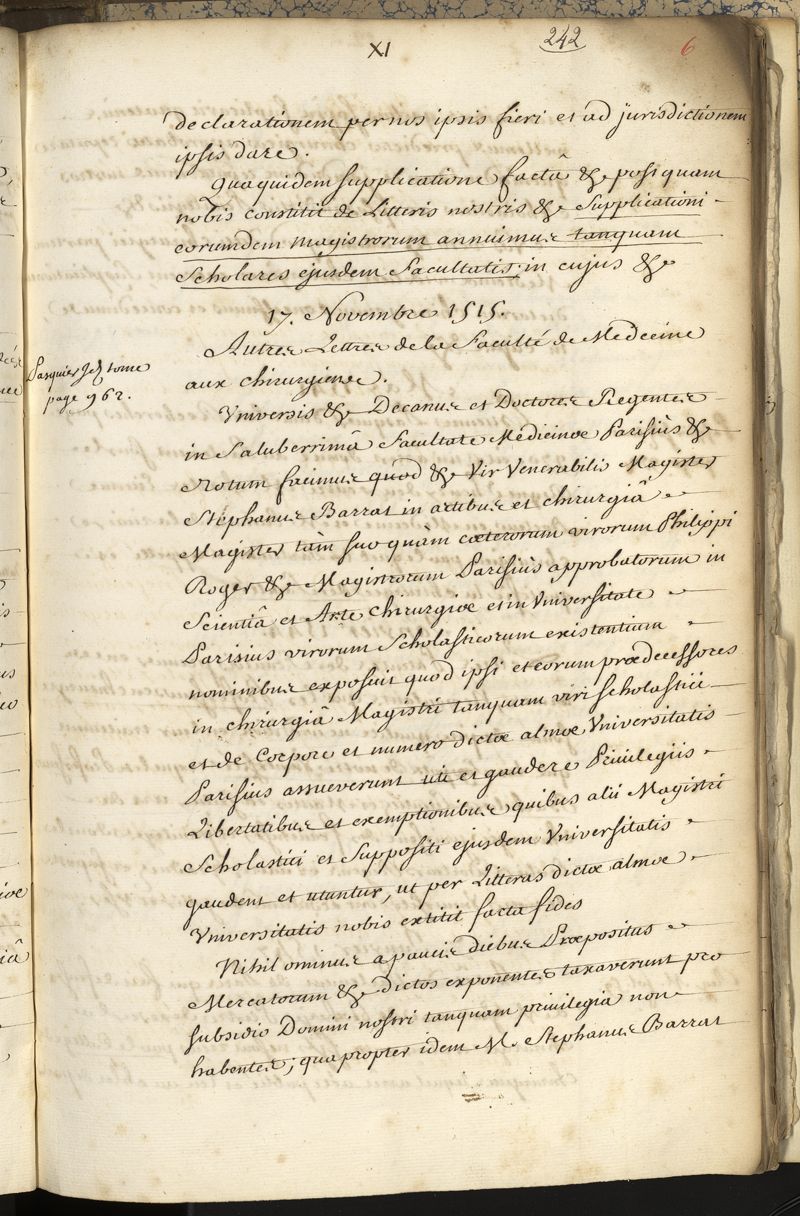 XI
242
6
declarationem per nos ipsis fieri et ad jurisdictionem
ipsis dare.
Qua quidem supplicatione factâ &c postquam
nobis constitit de Litteris nostris &c Supplicationi
eorumdem magistrorum annuimus tanquam
Scholares ejusdem Facultatis; in cujus &c
17. Novembre 1515.
Autres Lettres de la Faculté de Medecine
aux chirurgiens.
Pasquier Id tome
page 962.
Universis &c Decanus et Doctores Regentes
in Saluberrimâ Facultate Medicinæ Parisiùs &c
Notum facimus quòd &c Vir Venerabilis Magister
Stephanus Barrat in artibus et chirurgiâ
Magister tàm suo quàm cæterorum virorum Philippi
Roger &c Magistrorum Parisiùs approbatorum in
Scientiâ et Arte chirurgiæ et in Universitate
Parisius virorum Scholasticorum existentium
nominibus exposuit quod ipsi et eorum prædecessores
in chirurgiâ Magistri tanquam viri scholastici
et de Corpore et numero dictæ almæ Universitatis
Parisius assueverunt uti et gaudere Privilegiis
Libertatibus et exemptionibus quibus alii Magistri
Scholastici et Suppositi ejusdem Universitatis
gaudent et utuntur, ut per Litteras dictæ almæ
Universitatis nobis extitit facta fides
Nihil ominus a paucis diebus Præpositus
Mercatorum &c dictos exponentes taxaverunt pro
subsidio Domini nostri tanquam privilegia non
habentes; quapropter idem M. Stephanus Barrat